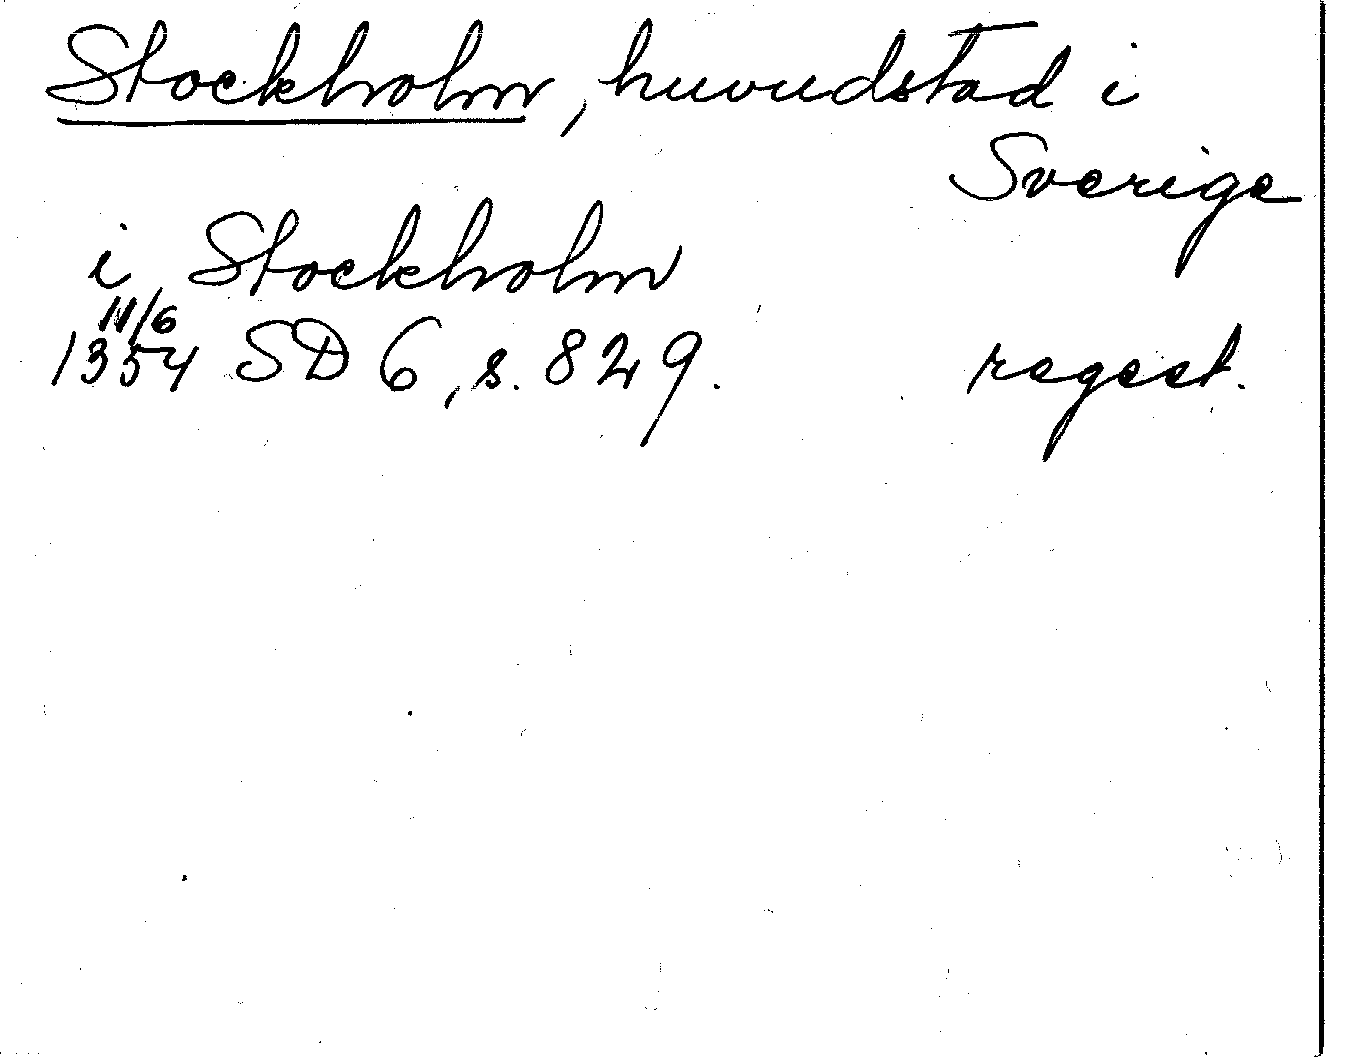 Stockholm, huvudstad i
Sverige
i Stockholm
11/6
1354 SD 6, s. 829. regest.